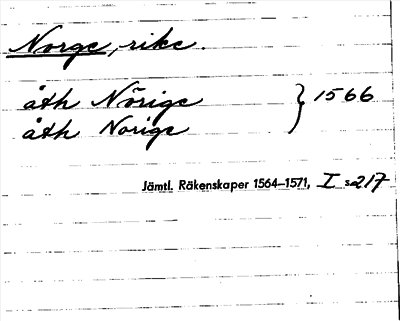 Norge, rike.
åth Nörige } 1566
åth Norige
Jämtl. Räkenskaper 1564–1571, I s. 217